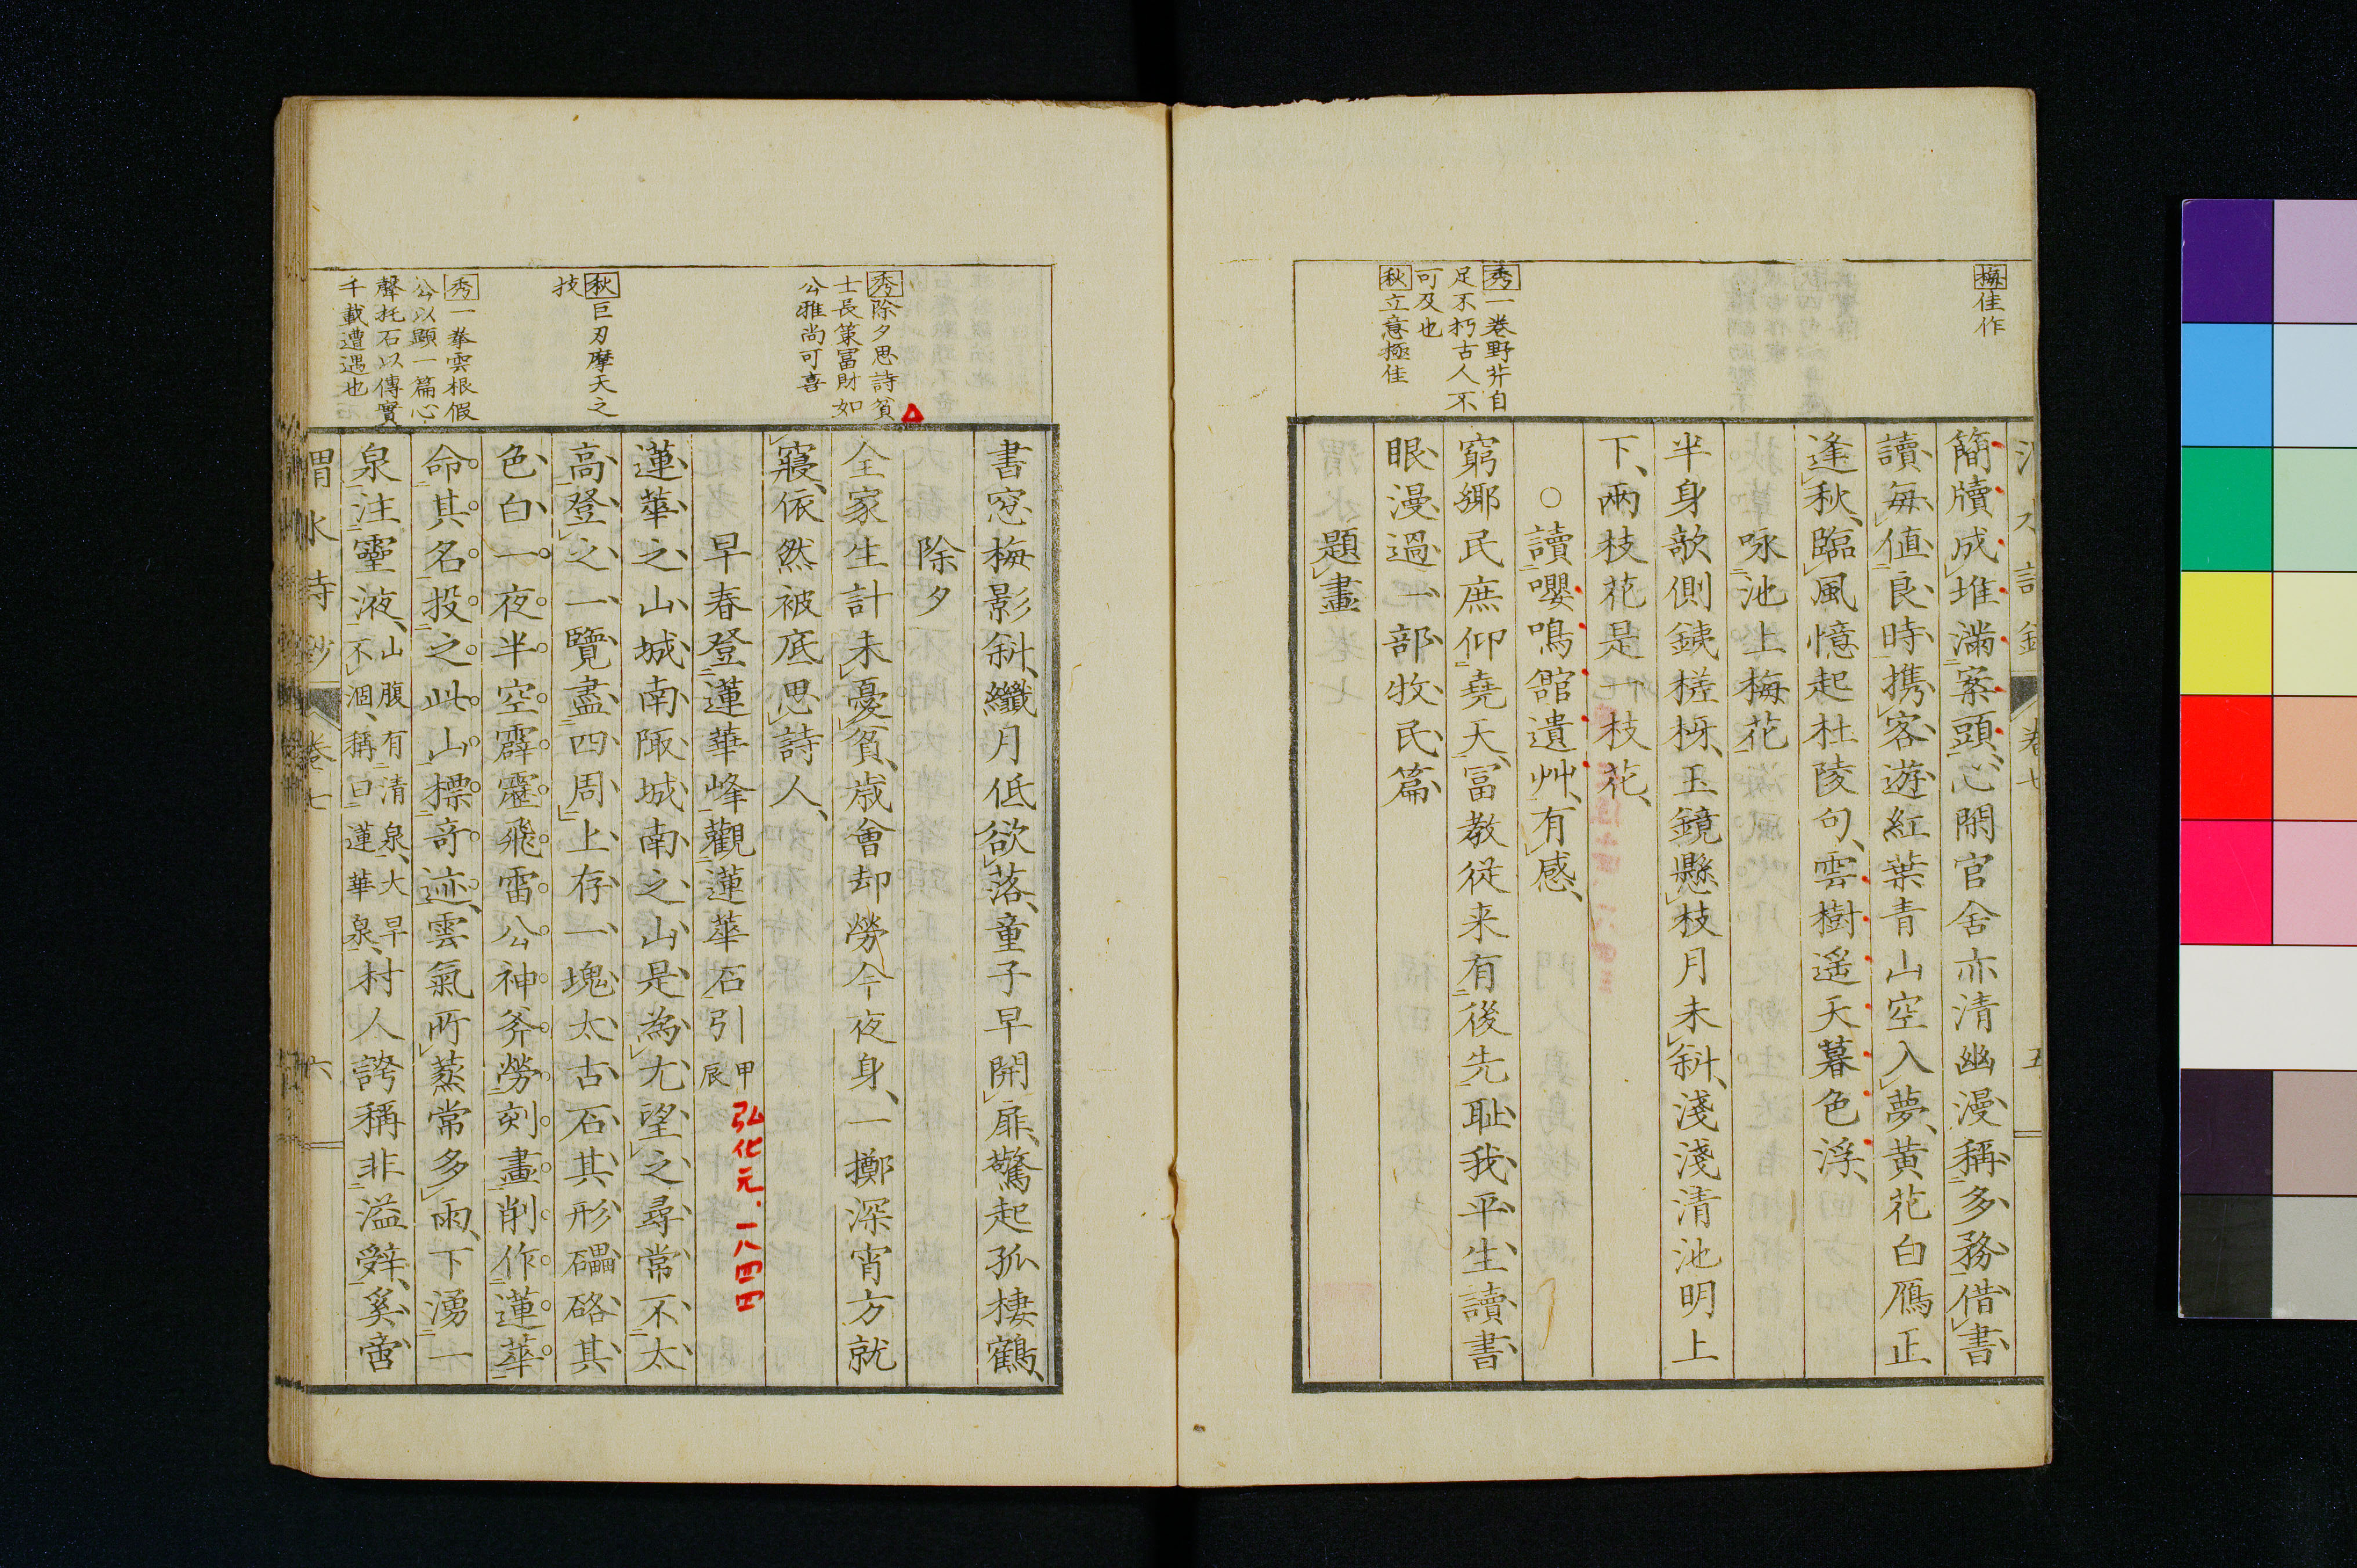 梅佳作
秀一卷野芹自
足不朽古人不
可及也
秋立意極佳
簡牘成堆滿案頭心閑官舍亦清幽漫稱多務借書
讀每值良時携客遊紅葉青山空入夢黄花白鴈正
逢秋臨風憶起杜陵句雲樹遥天暮色浮
咏池上梅花
半身歆側銕槎枒玉鏡懸枝月未斜淺淺清池明上
下兩枝花是一枝花
○讀嚶鳴舘遺艸有感
窮鄉民庶仰堯天冨教從来有後先耻我平生讀書
眼漫過一部牧民篇
題畫
卷七
五
秀除夕思詩貧
士長策冨財如
公雅尚可喜
秋巨刃摩天之
技
秀一拳雲根假
公以顯一篇心
聲托石以傳實
千載遭遇也
書窓梅影斜纖月低欲落童子早開扉驚起孤棲鶴
除夕
全家生計未憂貧歳會却勞今夜身一擲深宵方就
寢依然被底思詩人
早春登蓮華峰觀蓮華石引 甲辰
弘化元.一八四四
蓮華之山城南陬城南之山是為尤望之尋常不太
高登之一覽盡四周上存一塊太古石其形礧硌其
色白一夜半空霹靂飛雷公神斧勞刻畫削作蓮華
命其名投之此山標奇迹雲氣所蒸常多雨下湧一
泉注靈液 山腹有清泉大旱不涸稱曰蓮華泉 村人誇稱非溢辭奚啻
渭水詩鈔
卷七
六